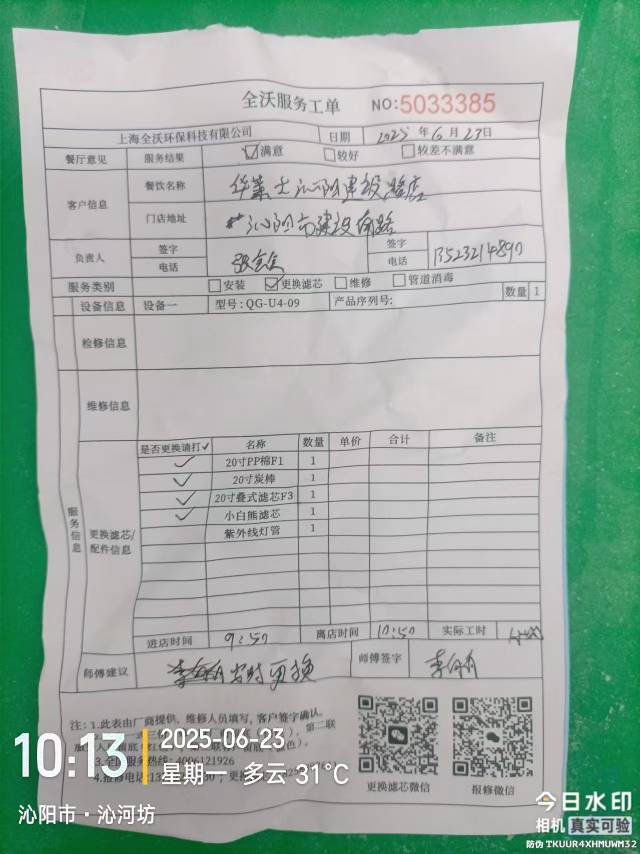 全沃服务工单 NO:5033385
上海全沃环保科技有限公司 日期 2025 年 6 月 23 日
餐厅意见 服务结果 ☑满意 □较好 □较差不满意
客户信息 餐饮名称 华莱士沁阳建设路店
门店地址 沁阳市建设南路
负责人 签字 签字
电话 电话 13523214890
服务类别 □安装 ☑更换滤芯 □维修 □管道消毒
设备信息 设备一 型号: QG-U4-09 产品序列号: 数量 1
检修信息
维修信息
服务信息
更换滤芯/配件信息
是否更换请打✓ 名称 数量 单价 合计 备注
✓ 20寸PP棉F1 1
✓ 20寸炭棒 1
✓ 20寸叠式滤芯F3 1
✓ 小白熊滤芯 1
紫外线灯管 1
进店时间 9:50 离店时间 10:50 实际工时
师傅建议 更换 师傅签字
注: 1.此表由厂商提供、维修人员填写, 客户签字确认。
第二联
3.全国服务热线: 4006121926
更换滤芯微信 报修微信
10:13 2025-06-23
星期一 多云 31℃
沁阳市·沁河坊
今日水印
相机 真实可验
防伪 TKUUR4XHMUWM32